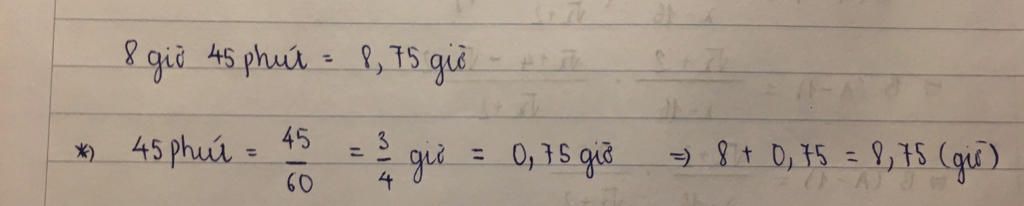 8 giờ 45 phút = 8,75 giờ
*) 45 phút = 45/60 = 3/4 giờ = 0,75 giờ => 8 + 0,75 = 8,75 (giờ)